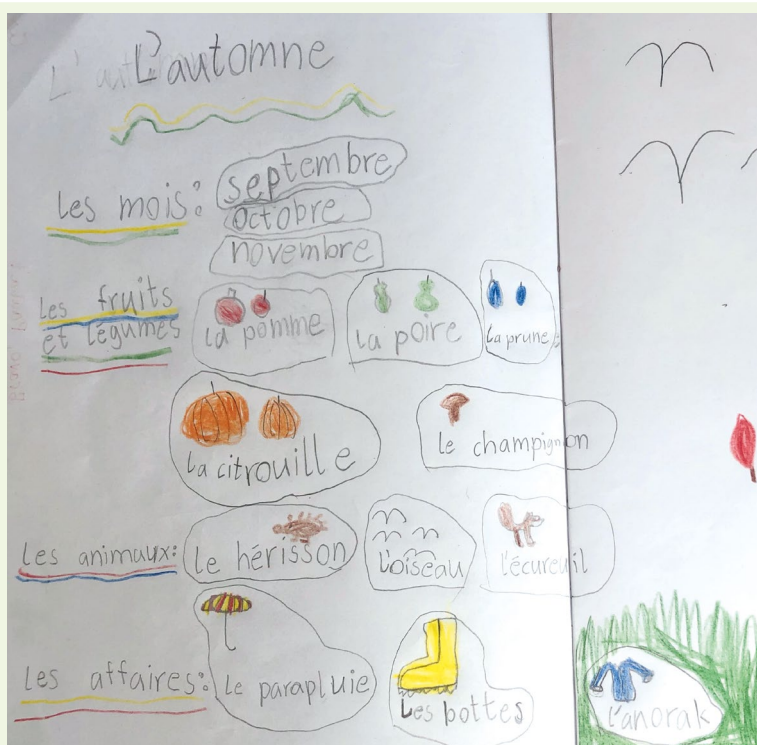 L'automne
Les mois: septembre
octobre
novembre
Les fruits
et légumes
la pomme
la poire
la prune
la citrouille
le champignon
Les animaux: le hérisson l'oiseau l'écureuil
Les affaires: le parapluie Les bottes l'anorak